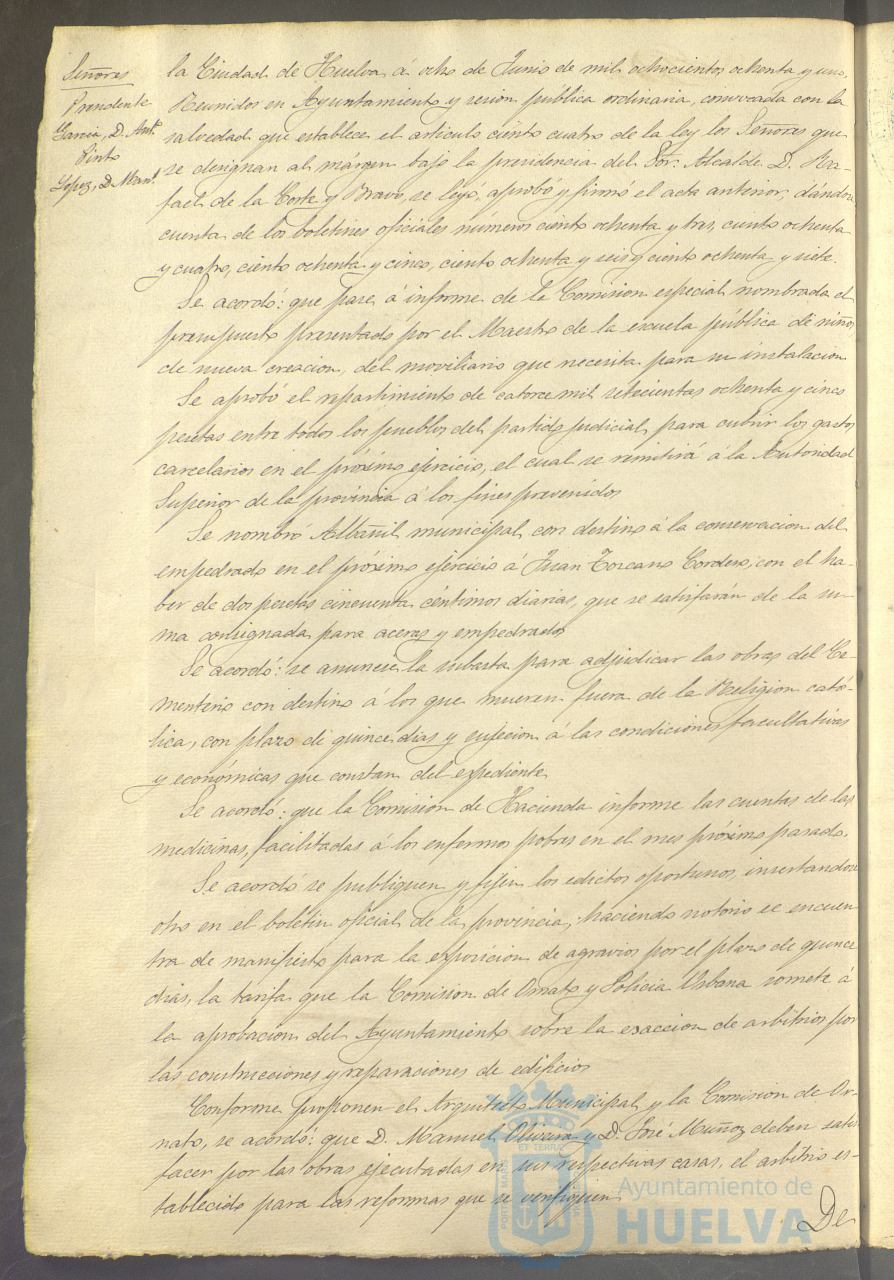 Señores
Presidente
Garcia, D. Ant.º
Pinto
Lopez, D. Man.l
la Ciudad de Huelva á ocho de Junio de mil ochocientos ochenta y uno,
Reunidos en Ayuntamiento y sesion publica ordinaria, convocada con la
salvedad que establece el articulo ciento cuatro de la ley los Señores que
se designan al margen bajo la presidencia del Sor. Alcalde D. Ra-
fael de la Corte y Bravo, se leyó, aprobó y firmó el acta anterior, dándose
cuenta de los boletines oficiales números ciento ochenta y tres, ciento ochenta
y cuatro, ciento ochenta y cinco, ciento ochenta y seis y ciento ochenta y siete.
Se acordó: que pase á informe de la Comision especial nombrada el
presupuesto presentado por el Maestro de la escuela pública de niños
de nueva creacion, del moviliario que necesita para su instalacion
Se aprobó el repartimiento de catorce mil setecientas ochenta y cinco
pesetas entre todos los pueblos del partido judicial para cubrir los gastos
carcelarios en el próximo ejercicio, el cual se remitirá á la Autoridad
Superior de la provincia á los fines prevenidos
Se nombró Albañil municipal con destino á la conservacion del
empedrado en el próximo ejercicio á Juan Toscano Cordero, con el ha-
ber de dos pesetas cincuenta céntimos diarias, que se satisfarán de la su-
ma consignada para aceras y empedrados
Se acordó: se anuncie la subasta para adjudicar las obras del Ce-
menterio con destino á los que mueren fuera de la Religion cató-
lica, con plazo de quince dias y sujecion á las condiciones facultativas
y económicas que constan del expediente
Se acordó: que la Comision de Hacienda informe las cuentas de las
medicinas, facilitadas á los enfermos pobres en el mes próximo pasado.
Se acordó se publiquen y fijen los edictos oportunos, insertandose
otro en el boletin oficial de la provincia, haciendo notorio se encuen
tra de manifiesto para la exposicion de agravios por el plazo de quince
dias, la tarifa que la Comision de Ornato y Policia Urbana somete á
la aprobacion del Ayuntamiento sobre la exaccion de arbitrios por
las construcciones y reparaciones de edificios
Conforme proponen el Arquitecto Municipal y la Comision de Or-
nato, se acordó: que D. Manuel Olivera y D. José Muñoz deben satis
facer por las obras ejecutadas en sus respectivas casas, el arbitrio es-
tablecido para las reformas que se verifiquen.
De
Ayuntamiento de
HUELVA